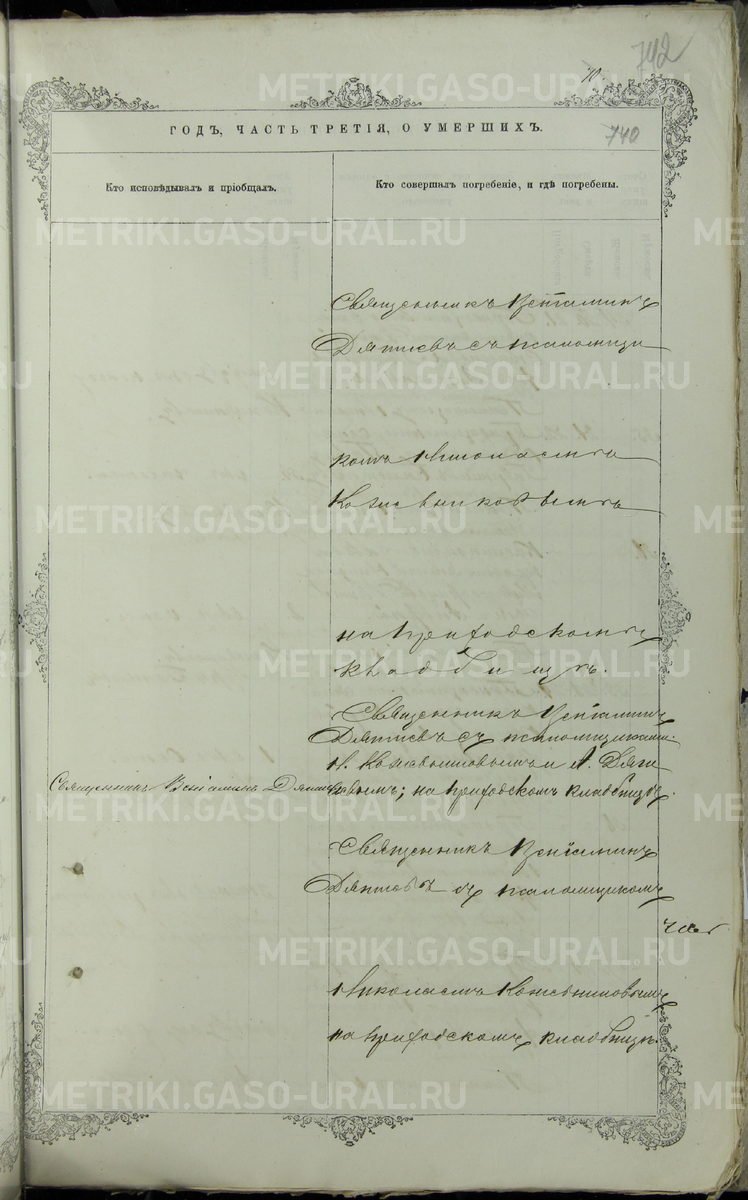 742
70.
ГОДЪ, ЧАСТЬ ТРЕТІЯ, О УМЕРШИХЪ.
740
Кто исповѣдывалъ и пріобщалъ.
Кто совершалъ погребеніе, и гдѣ погребены.
Священникъ Веніаминъ
съ псаломщи
комъ Николаемъ
Кожевниковымъ
на приходскомъ
кладбищѣ.
Священникъ Веніаминъ
съ псаломщиками
Н. Кожевниковымъ и А.
Священникъ Веніаминъ
на приходскомъ кладбищѣ.
Священникъ Веніаминъ
съ псаломщикомъ
Николаемъ Кожевниковымъ
на приходскомъ кладбищѣ.
METRIKI.GASO-URAL.RU